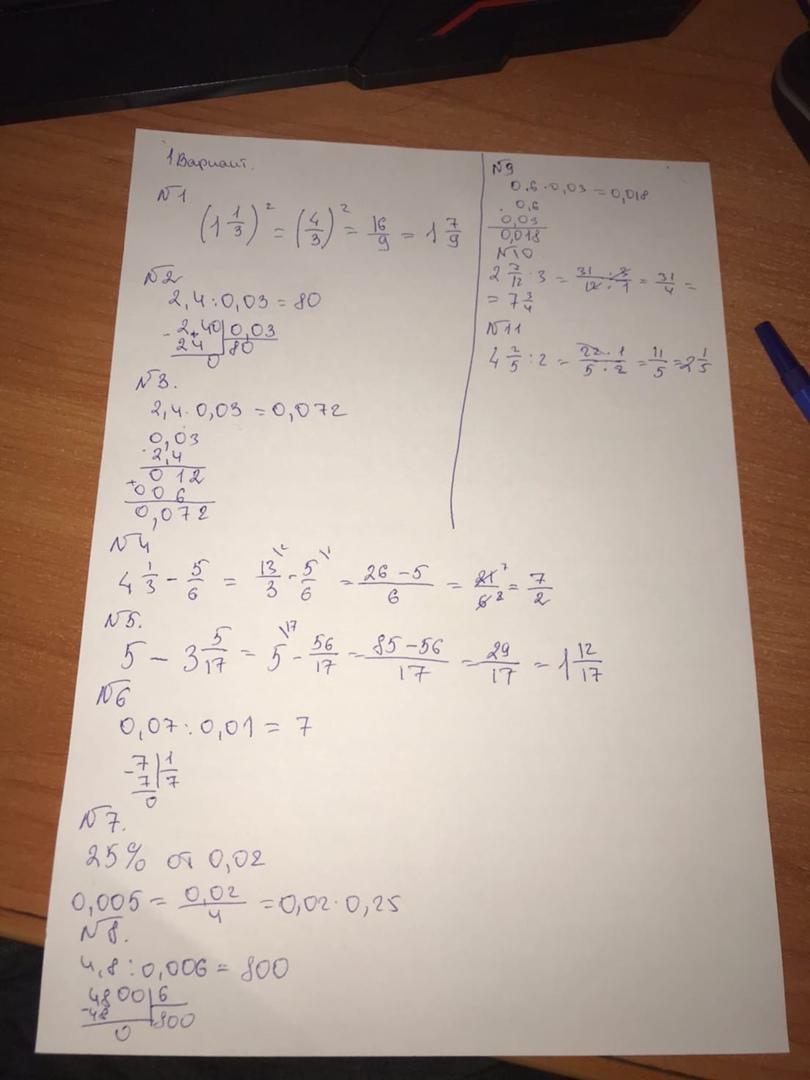 1 Вариант.
№1
(1 1/3)² = (4/3)² = 16/9 = 1 7/9
№2
2,4 : 0,03 = 80
- 2,40 | 0,03
24 | 80
0
№3.
2,4 · 0,03 = 0,072
0,03
· 2,4
0 12
+ 00 6
0,072
№4
4 1/3 - 5/6 = 13/3 \2 - 5/6 \1 = 26 - 5/6 = 21/6 7 2 = 7/2
№5.
5 - 3 5/17 = 5 \17 - 56/17 = 85 - 56/17 = 29/17 = 1 12/17
№6
0,07 : 0,01 = 7
- 7 | 1
7 | 7
0
№7.
25% от 0,02
0,005 = 0,02/4 = 0,02 · 0,25
№8.
4,8 : 0,006 = 800
4800 | 6
- 48 | 800
0
№9
0,6 · 0,03 = 0,018
· 0,6
0,03
0,018
№10
2 7/12 · 3 = 31 · 3/12 · 1 = 31/4 =
= 7 3/4
№11
4 2/5 : 2 = 22 · 1/5 · 2 = 11/5 = 2 1/5